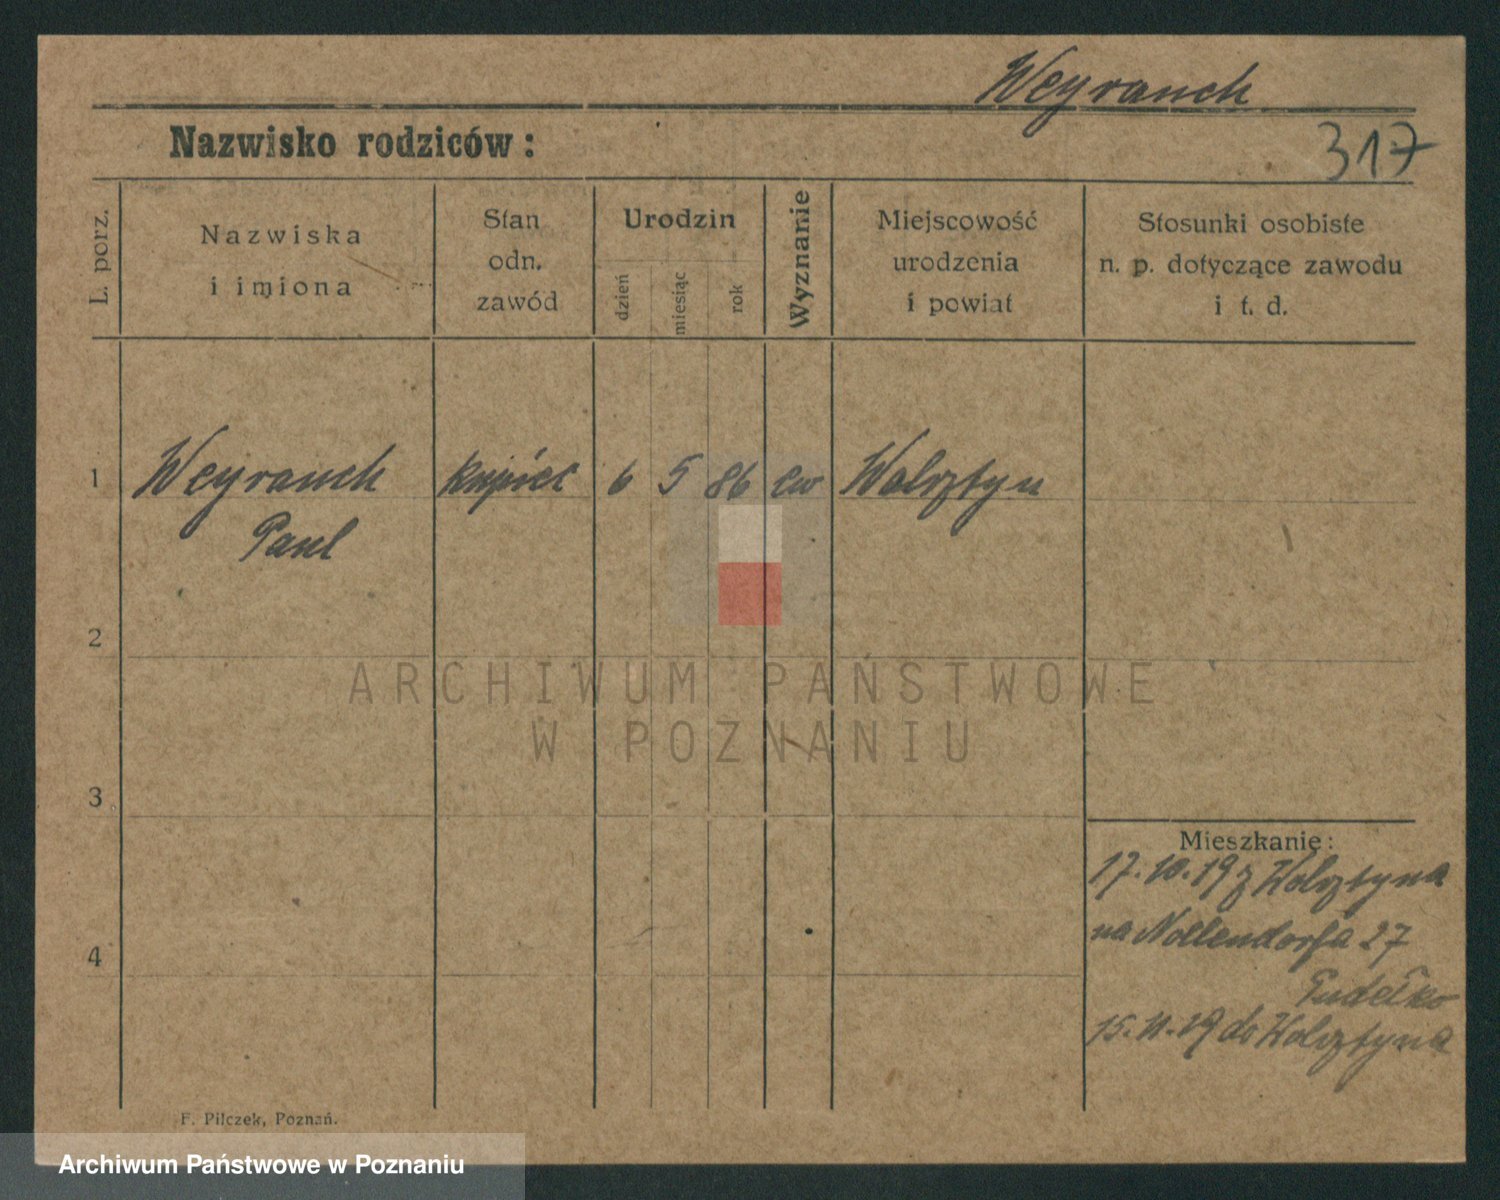 Weyrauch
Nazwisko rodziców:
317
L. porz.
Nazwiska
i imiona
Stan
odn.
zawód
Urodzin
dzień
miesiąc
rok
Wyznanie
Miejscowość
urodzenia
i powiat
Stosunki osobiste
n. p. dotyczące zawodu
i t. d.
1
Weyrauch
Paul
kupiec
6
5
86
ew
Wolsztyn
2
ARCHIWUM PAŃSTWOWE
W POZNANIU
3
Mieszkanie:
17.10.19 z Wolsztyna
na Nollendorfa 27
Pudełko
15.11.19 do Wolsztyna
4
F. Pilczek, Poznań.
Archiwum Państwowe w Poznaniu